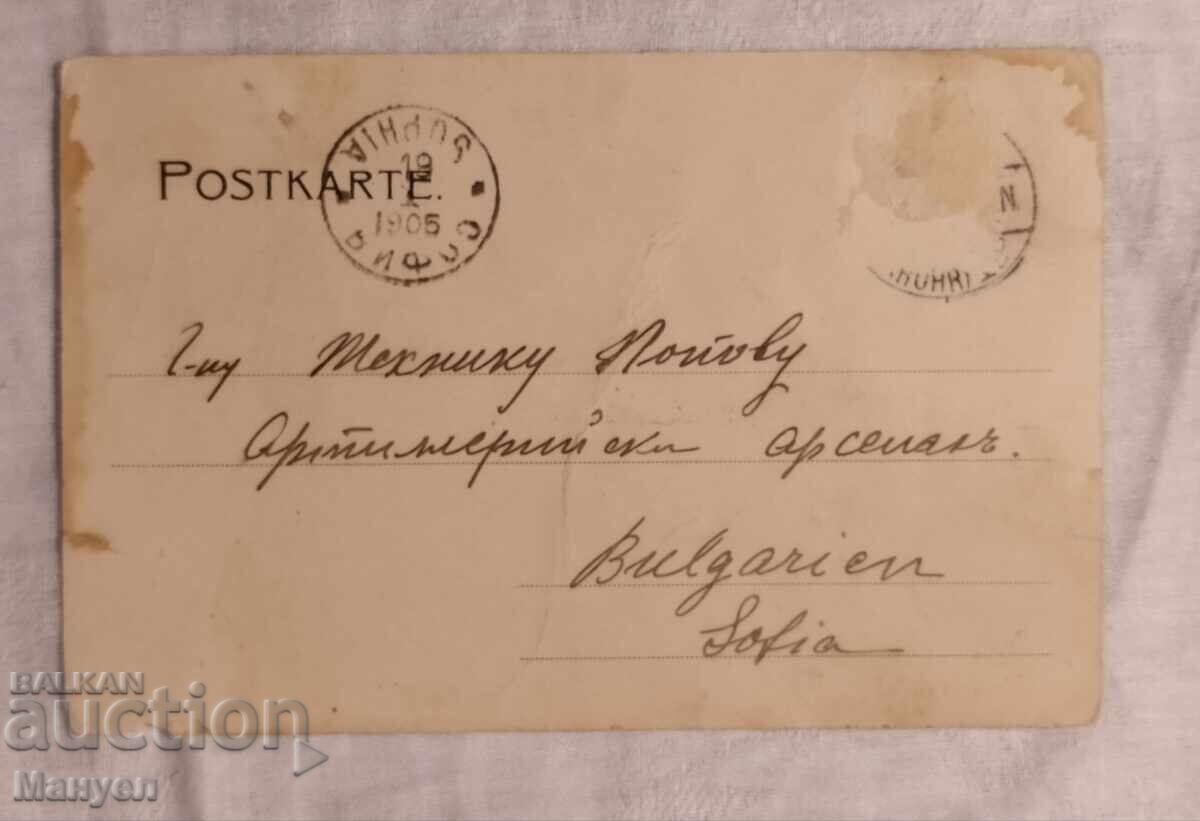 POSTKARTE.
SOPHIA
19
1905
СОФИЯ
N
(RUHR)
Г-ну Технику Попову
Артилерийски арсеналъ.
Bulgarien
Sofia
BALKAN
auction
Мануел